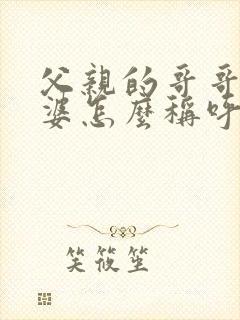 父親的哥哥
婆怎麼稱呼
笑筱笙